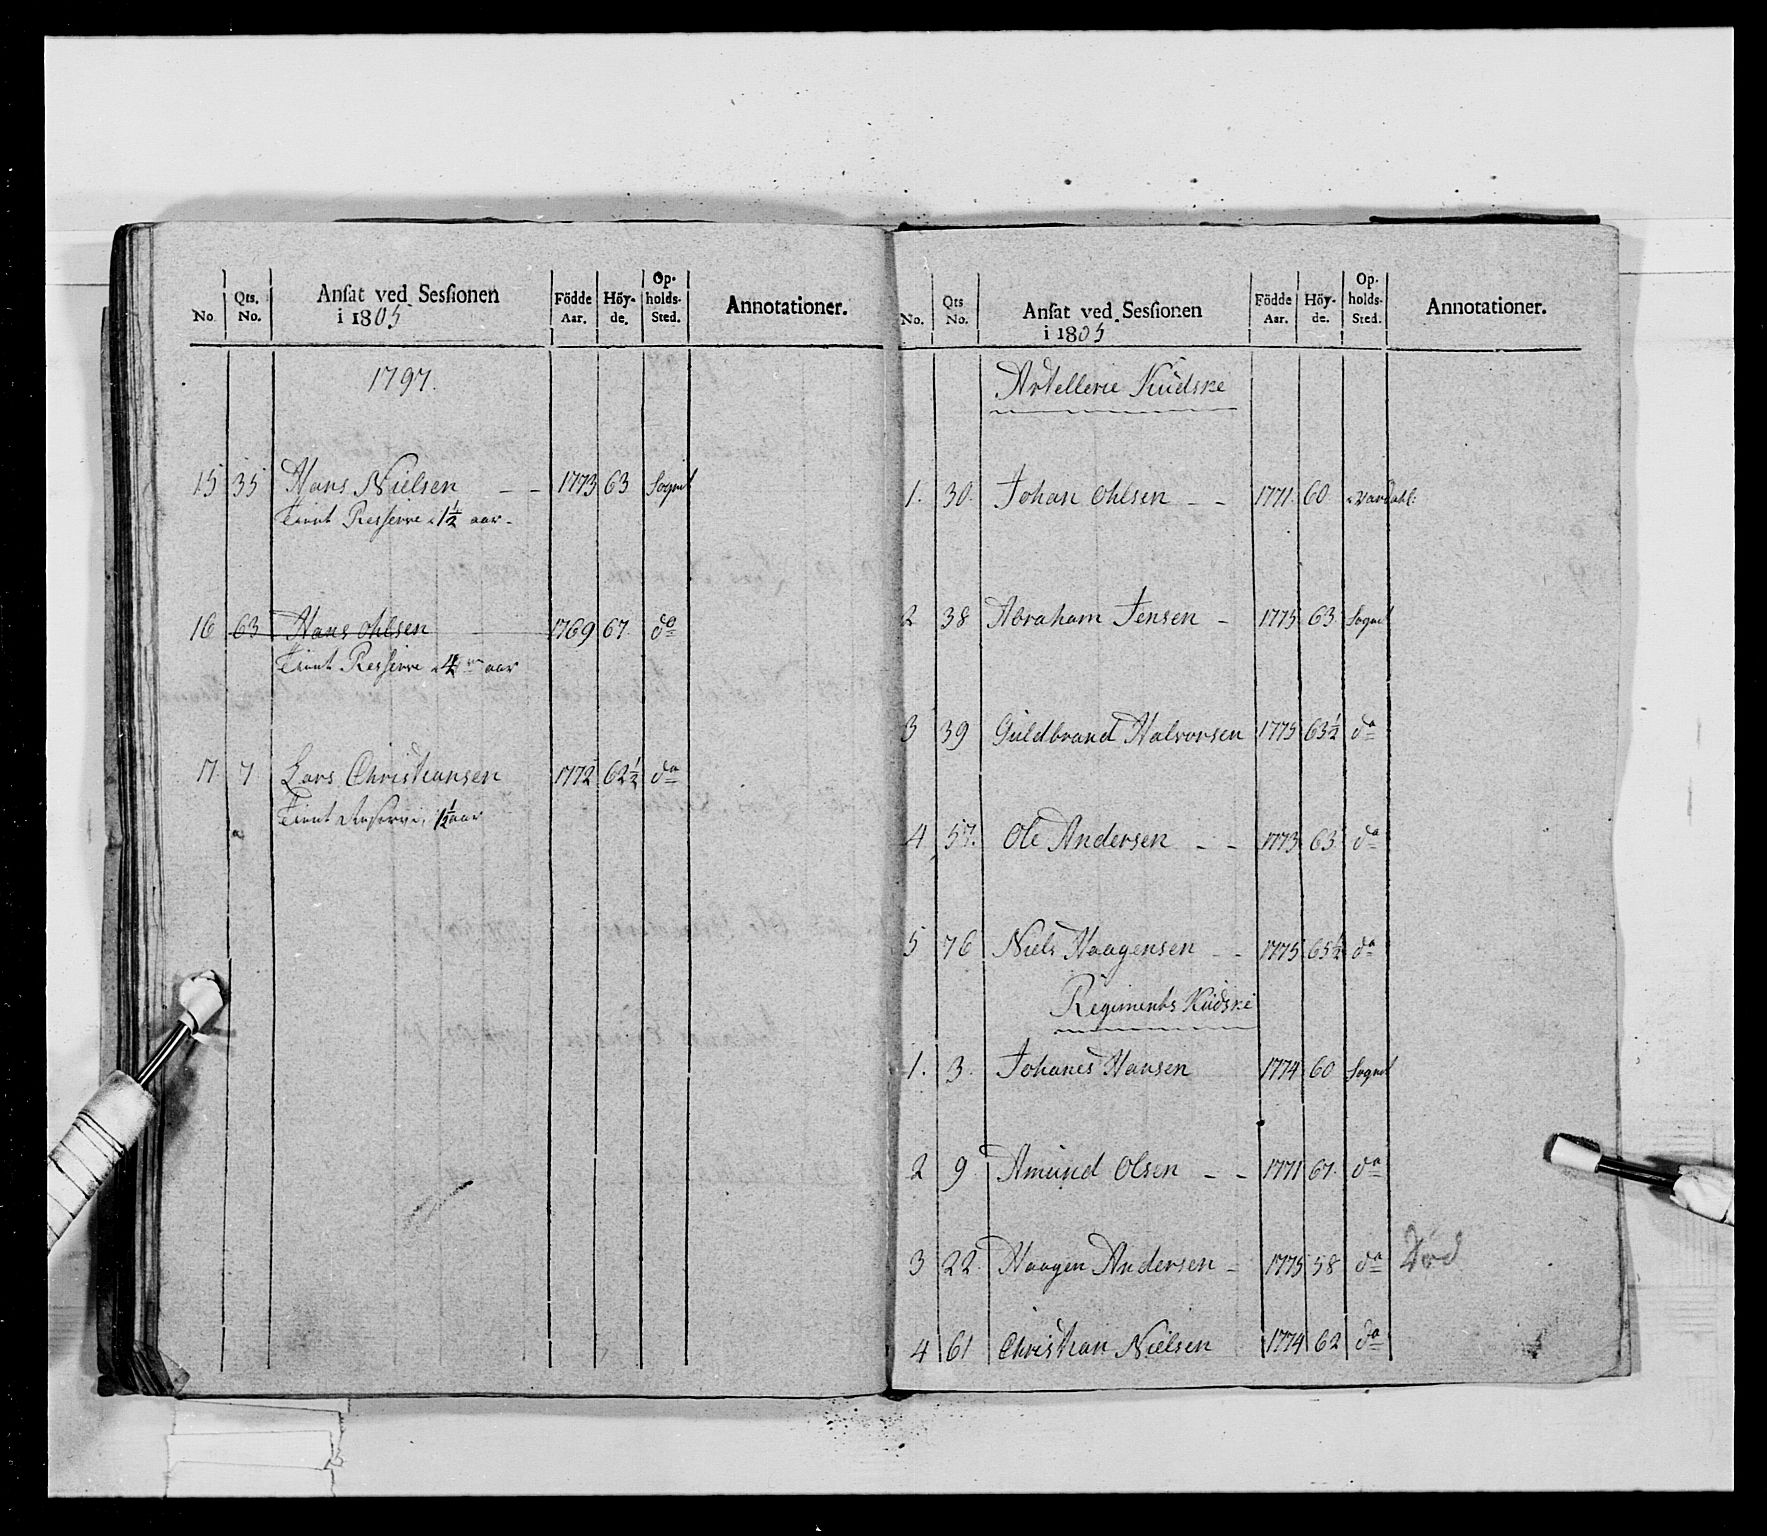 No. Qts. No. Ansat ved Sessionen i 1805 Födde Aar. Höyde. Opholds-Sted. Annotationer.
1797.
15 35 Hans Nielsen - - 1773 63 Sognet
Tient Resserve 1½ aar.
16 63 Hans Ohlsen 1769 67 do
Tient Resserve 4 aar
17 7 Lars Christiansen 1772 62½ do
Tient Reserve 1½ aar
No. Qts No. Ansat ved Sessionen i 1805 Födde Aar. Höyde. Opholds-Sted. Annotationer.
Artellerie Kudske
1. 30. Johan Ohlsen - - 1771. 60 Vardahl:
2 38 Abraham Jensen - 1775 63 Sognet
3 39 Guldbrand Halvorsen 1775 63½ do
4 57. Ole Andersen - - 1773 63 do
5 76 Niels Haagensen - - 1775 65½ do
Regiments Kudske
1. 3. Johanes Hansen 1774 60 Sognet
2 9. Amund Olsen - - 1771 67. do
3 22. Haagen Andersen - 1775 58 do Död
4 61 Christian Nielsen 1774 62 do